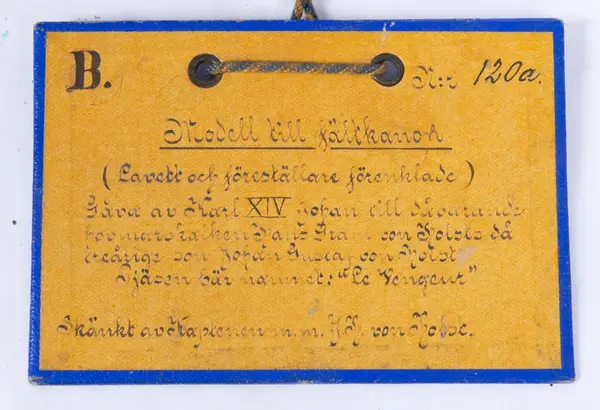 B.
N:r 120a.
Modell till fältkanon
(Lavett och föreställare förenklade)
Gåva av Karl XIV Johan till dåvarande
hovmarskalken Hans Gram von Holsts då
treårige son Johan Gustaf von Holst
Pjäsen bär namnet: "Le Vengeur"
Skänkt av Kaptenen m. m. von Holst.